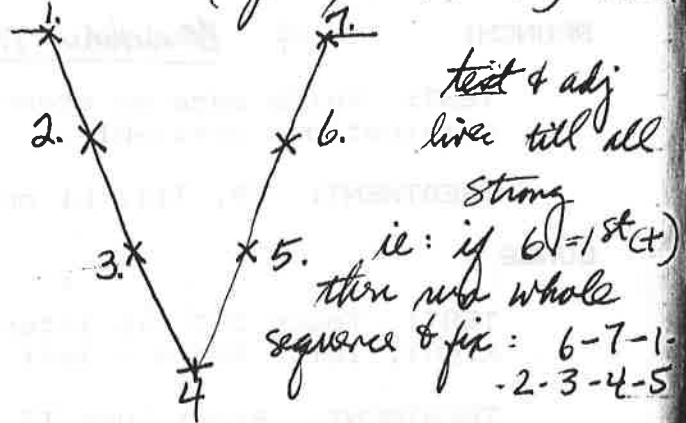 1.
7.
2.
6.
3.
5.
4
test & adj
lines till all
strong
ie: if 6 = 1st (+)
then run whole
sequence & fix: 6-7-1-
-2-3-4-5